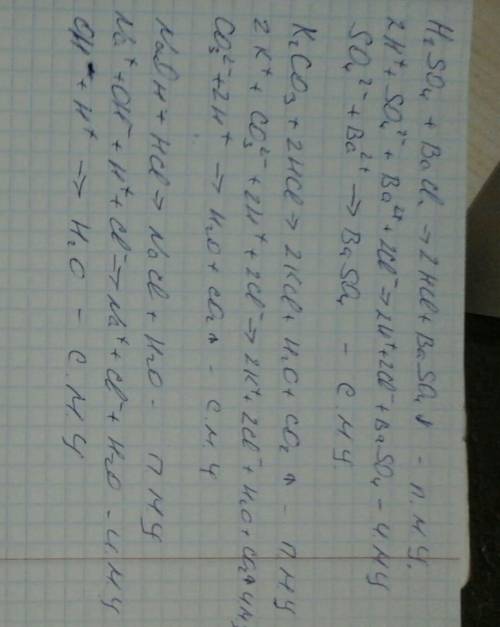 H₂SO₄ + BaCl₂ → 2HCl + BaSO₄↓ - П.М.У.
2H⁺ + SO₄²⁻ + Ba²⁺ + 2Cl⁻ → 2H⁺ + 2Cl⁻ + BaSO₄ - И.М.У
SO₄²⁻ + Ba²⁺ → BaSO₄ - С.М.У.
K₂CO₃ + 2HCl → 2KCl + H₂O + CO₂↑ - П.М.У
2K⁺ + CO₃²⁻ + 2H⁺ + 2Cl⁻ → 2K⁺ + 2Cl⁻ + H₂O + CO₂↑ И.М.
CO₃²⁻ + 2H⁺ → H₂O + CO₂↑ - С.М.У
NaOH + HCl → NaCl + H₂O - П.М.У
Na⁺ + OH⁻ + H⁺ + Cl⁻ → Na⁺ + Cl⁻ + H₂O - И.М.У
OH⁻ + H⁺ → H₂O - С.М.У